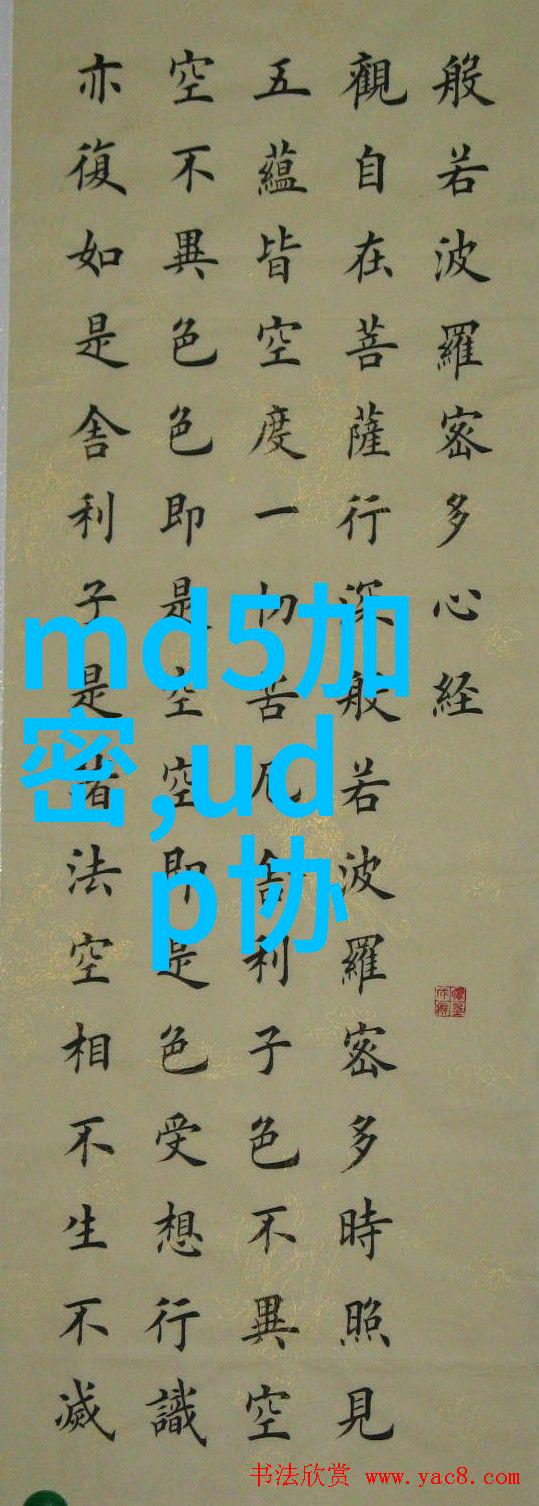 般若波羅密多心経
觀自在菩薩行深般若波羅密多時照見
五蘊皆空度一切苦厄舎利子色不異空
空不異色色即是空空即是色受想行識
亦復如是舎利子是诸法空相不生不滅
md5加
密,ud
p协
书法欣赏 www.yac8.com